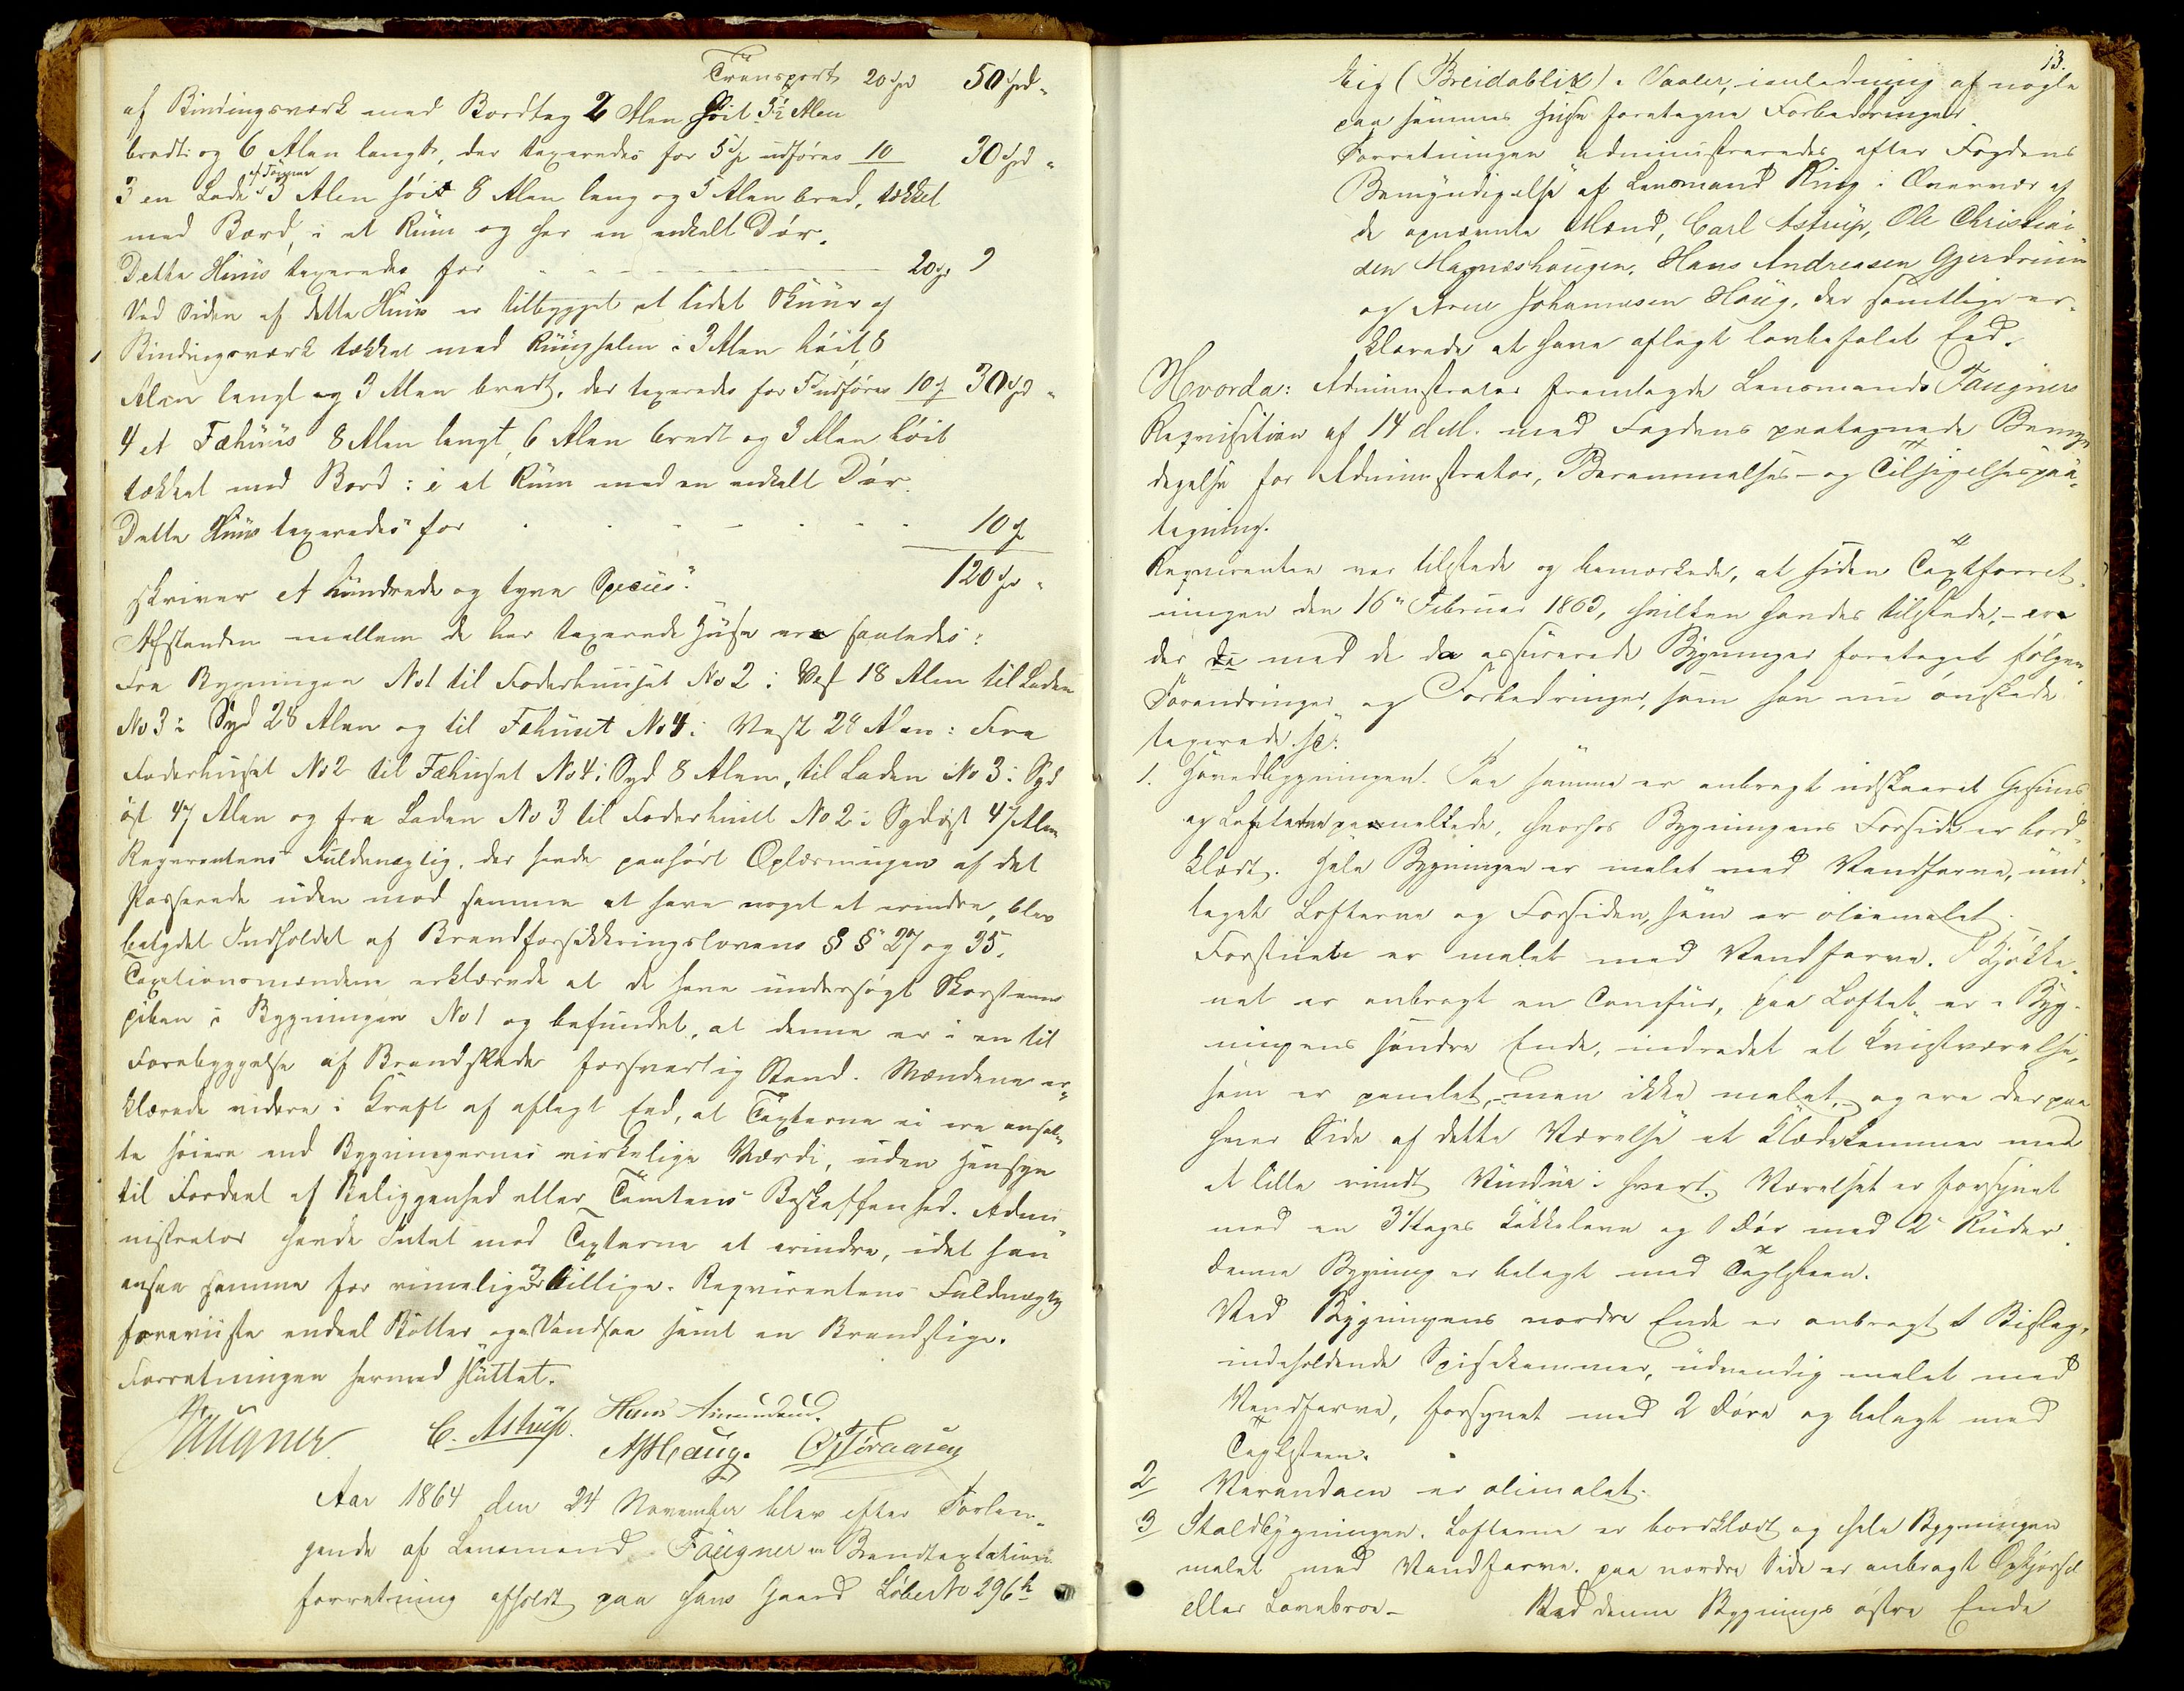 Transport 20 Spd 50 Spd "
af Bindingsværk med Bordtag 2 Alen høit 3½ Alen
bredt og 6 Alen langt, der taxeredes for 5 Sp udføres 10 30 Spd "
3 en Lade af Tømmer 3 Alen høit 8 Alen lang og 5 Alen bred, tækket
med Bord, i et Rum og har en enkelt Dør.
Dette Huus taxeredes for - - - 20 Sp
Ved Siden af dette Huus er tilbygget et lidet Skuur af
Bindingsværk tækket med Rüüghalm : 3 Alen høit 8
Alen langt og 3 Alen bredt, der taxeredes for udføres 10 30 Spd "
4 et Fæhuus 8 Alen langt, 6 Alen bredt og 3 Alen høit
tækket med Bord : i et Rum med en enkelt Dør.
Dette Huus taxeredes for - - - 10
skriver et hundrede og tyve Species. 120 Spd "
Afstanden mellem de her taxerede Huse ere saaledes:
Fra Bygningen No 1 til Foderhuuset No 2 : Vest 18 Alen til Laden
No 3 : Syd 28 Alen og til Fæhuset No 4 : Vest 28 Alen : Fra
Foderhuset No 2 til Fæhuset No 4 : Syd 8 Alen, til Laden No 3 : Syd
øst 47 Alen og fra Laden No 3 til Foderhuset No 2 : Sydøst 47 Alen
Requirentens Fuldmægtig, der havde paahørt Oplæsningen af det
Passerede uden mod samme at have noget at erindre, blev
betydet Indholdet af Brandforsikkringslovens §§ 27 og 35.
Taxtionsmændene erklærede at de have undersøgt Skorsteens
piben i Bygningen No 1 og befundet, at denne er i en til
Forebyggelse af Brandskade forsvarlig Stand. Mændene er„
klærede videre i Kraft af aflagt Eed, at Taxterne ei ere ansat„
te høiere end Bygningernes virkelige Værdi, uden Hensyn
til Fordeel af Beliggenhed eller Tomtens Beskaffenhed. Admi„
nistrator havde Intet mod Taxterne at erindre, idet han
ansaa samme for rimelige og billige. Requirentens Fuldmægtig
foreviiste endeel Bøtter og Vandsaa samt en Brandstige.
Forretningen hermed sluttet.
Faugner C. Astrup. Hans Amundsen.
A J Haug.
Aar 1864 den 24 November blev efter Forlan„
gende af Lensmand Faugner en Brandtaxtation
forretning afholdt paa hans Gaard Løber No 296 h
13.
kig (Breidablik) i Vaaler, i anledning af nogle
paa sammes Huse foretagne Forbedringer.
Forretningen administreredes efter Fogdens
Bemyndigelse af Lensmand Ring i Overvær af
de opnævnte Mænd, Carl Astrup, Ole Christian
sen Hagnæshaugen, Hans Andreasen Gjerdrum
og Arne Johannesen Haug, der samtlige er„
klærede at have aflagt lovbefalet Eed.
Hvorda: Administrator fremlagde Lensmands Faugners
Requisition af 14 d.M. med Fogdens paategnede Bemyn
digelse for Administrator, Berammelses- og Tilsigelsespaa„
tegning.
Requirenten var tilstede og bemærkede, at siden Taxtforret„
ningen den 16" Februar 1863, hvilken havdes tilstede, - ere
der da med de da assurerede Bygninger foretaget følgende
Forandringer og Forbedringer, som han nu ønskede
taxerede. se:
1. Hovedbygningen. Paa samme er anbragt udskaaret Gesims
og Lofterne pannellede, hvorhos Bygningens Forside er bord„
klædt. Hele Bygningen er malet med Vandfarve, und„
taget Lofterne og Forsiden, som er oliemalet.
Forstuen er malet med Vandfarve. I Kjøkke„
net er anbragt en Comfur, paa Loftet er i Byg„
ningens søndre Ende, indredet et Kvistværelse,
som er panelet, men ikke malet, og ere der paa
hver Side af dette Værelse et Klædekammer med
et lille rundt Vindue i hvert. Værelset er forsynet
med en 3 Etages Kakkelovn og 1 Dør med 2 Ruder.
Denne Bygning er belagt med Taglsteen.
Ved Bygningens nordre Ende er anbragt 1 Bislag,
indeholdende Spisekammer, udvendig malet med
Vandfarve, forsynet med 2 Døre og belagt med
Taglsteen.
2 Verandaen er oliemalet.
3 Staldbygningen. Lofterne er bordklædt og hele Bygningen
malet med Vandfarve. paa nordre Side er anbragt Opkjørsel
eller Laavebroe - Ved denne Bygnings østre Ende